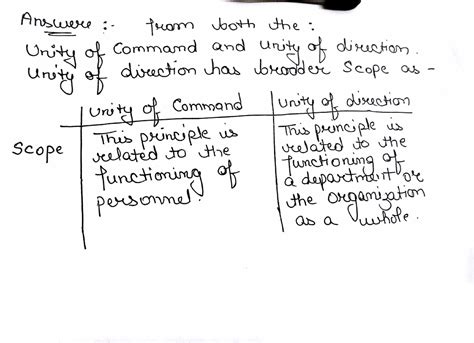 Answere :- from both the :
Unity of Command and Unity of direction.
Unity of direction has broder Scope as -
Unity of Command
Unity of direction
Scope
This principle is
related to the
functioning of
personnel.
This principle is
related to the
functioning of
a department or
the organization
as a whole.